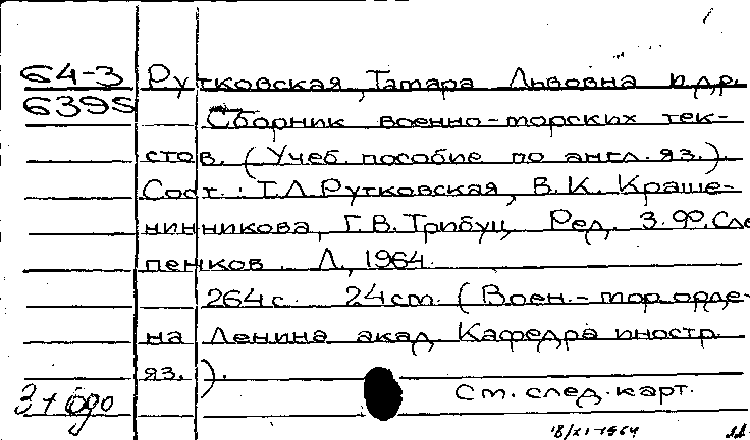 64-3 Рутковская, Тамара Львовна и др.
6395 Сборник военно-морских тек-
стов. (Учеб. пособие по англ. яз.).
Сост.: Т.Л. Рутковская, В. К. Краше-
нинникова, Г. В. Трибуц. Ред. З. Ф. Сле
пенков. Л., 1964.
264 с. 24 см. (Воен.-мор. орде-
на Ленина акад. Кафедра иностр.
яз.).
См. след. карт.
18/XI-1964